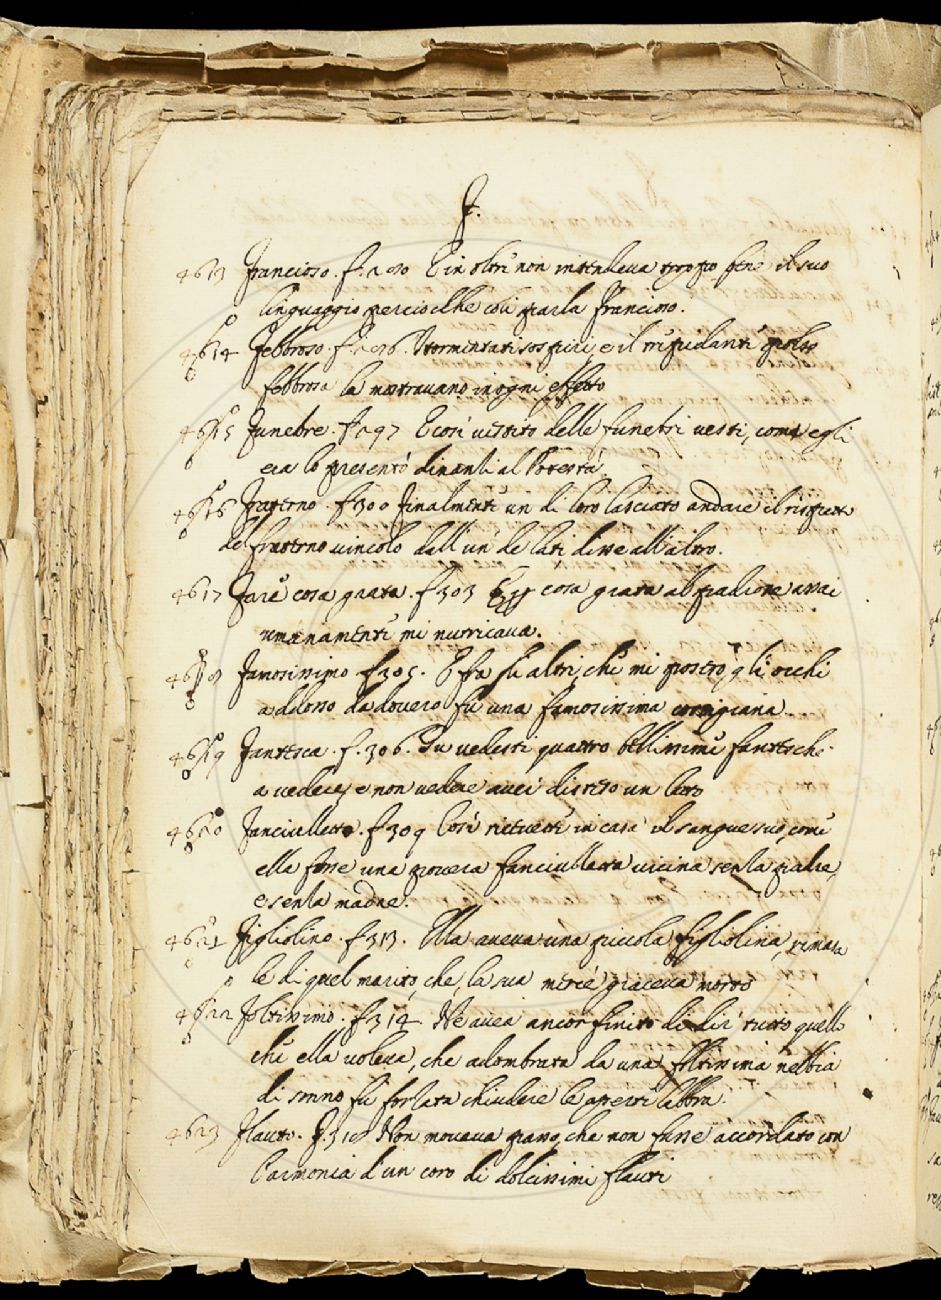 F.
4613 Francioso. f. 290 E in oltre non intendeva troppo bene il suo
linguaggio perciocche così parla Francioso.
4614 Febbroso. f. 296. tormentati sospiri, e il rifiudanti polso
febbroso la mostravano in ogni effetto
4615 Funebre. f. 297 E così vestito delle funebri vesti, come egli
era lo presentò dinanzi al Potestà
4616 Fraterno. f 300 finalmente un di loro lasciato andare il rispetto
del fraterno vincolo dall'un de lati disse all'altro.
4617 Fare cosa grata. f 303 cosa grata al padrone assai
umanamente mi nutricava.
Famosissimo f 305. E fra gli altri, che mi gli occhi
addosso da dovero fu una famosissima
4619 Fantesca. f. 306. Tu vedesti quattro bellissime fantesche
a vedere, e non vedere aver disteso un
4620 Fanciulletta. f 309 Così ricevette in casa il sangue suo, come
ella fosse una povera fanciulletta vicina senza padre,
e senza madre.
4621 Figliolino. f 313. Ella aveva una piccola figliolina, rimasa
le di quel marito, che, la sua mercé giaceva morto
4622 Foltissimo. f 314 Ne avea ancor finito di dir tutto quello
che ella voleva, che adombrata da una foltissima nebbia
di sonno fu forzata chiudere le aperte labbra.
4623 Flauto. F. 318 Non moveva passo, che non fusse accordato con
l'armonia d'un coro di dolcissimi flauti